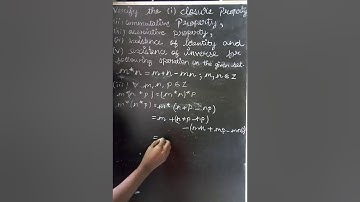 Verify the (i) closure Property
(ii) commutative Property,
(iii) associative property,
(iv) existence of identity and
(v) existence of inverse for
following operation on the given set
m*n = m+n-mn ; m,n ∈ Z
(iii) ∀ m, n, p ∈ Z
m*(n*p) = (m*n)*p
m*(n*p) = m*(n+p-np)
= m+(n+p-np)
=